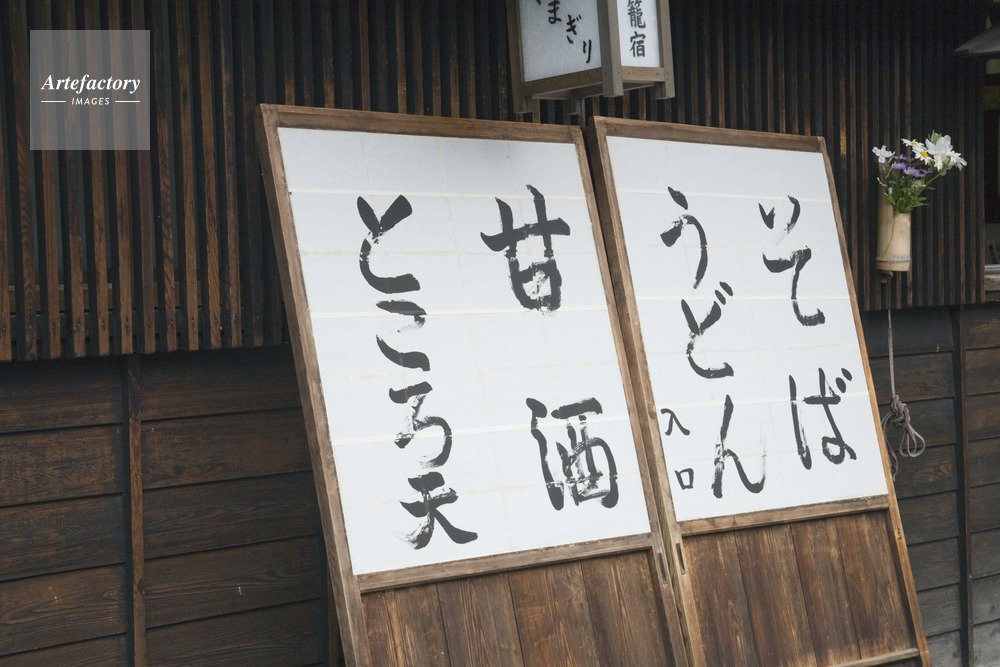 Artefactory
IMAGES
籠宿
まぎり
そば
うどん
入口
甘酒
ところ天